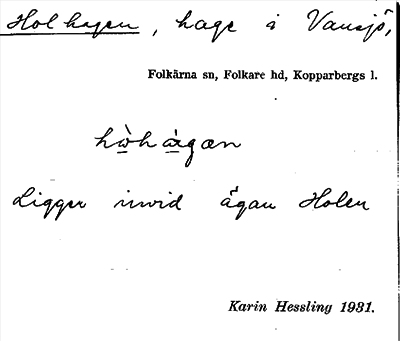 Holhagen, hage i Vansjö,
Folkärna sn, Folkare hd, Kopparbergs l.
Ligger invid ägan Holen
Karin Hessling 1931.